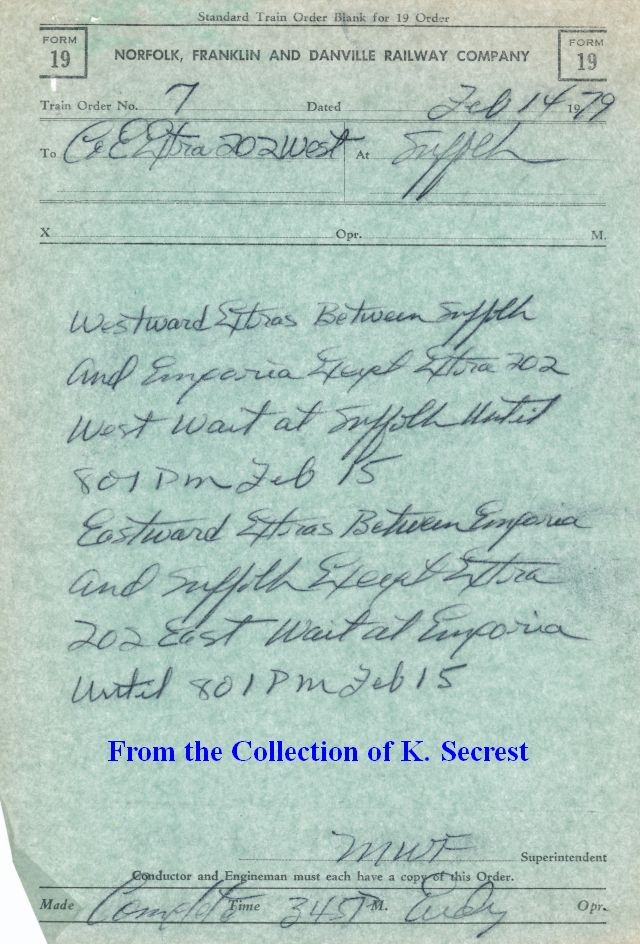 Standard Train Order Blank for 19 Order
FORM 19 NORFOLK, FRANKLIN AND DANVILLE RAILWAY COMPANY FORM 19
Train Order No. 7 Dated Feb 14 1979
To C&E Extra 202 West At Suffolk
X Opr. M.
Westward Extras Between Suffolk
And Emporia Except Extra 202
West Wait at Suffolk Until
801 Pm Feb 15
Eastward Extras Between Emporia
And Suffolk Except Extra
202 East Wait at Emporia
Until 801 Pm Feb 15
From the Collection of K. Secrest
MWF Superintendent
Conductor and Engineman must each have a copy of this Order.
Made Complete Time 345 P M. Opr.